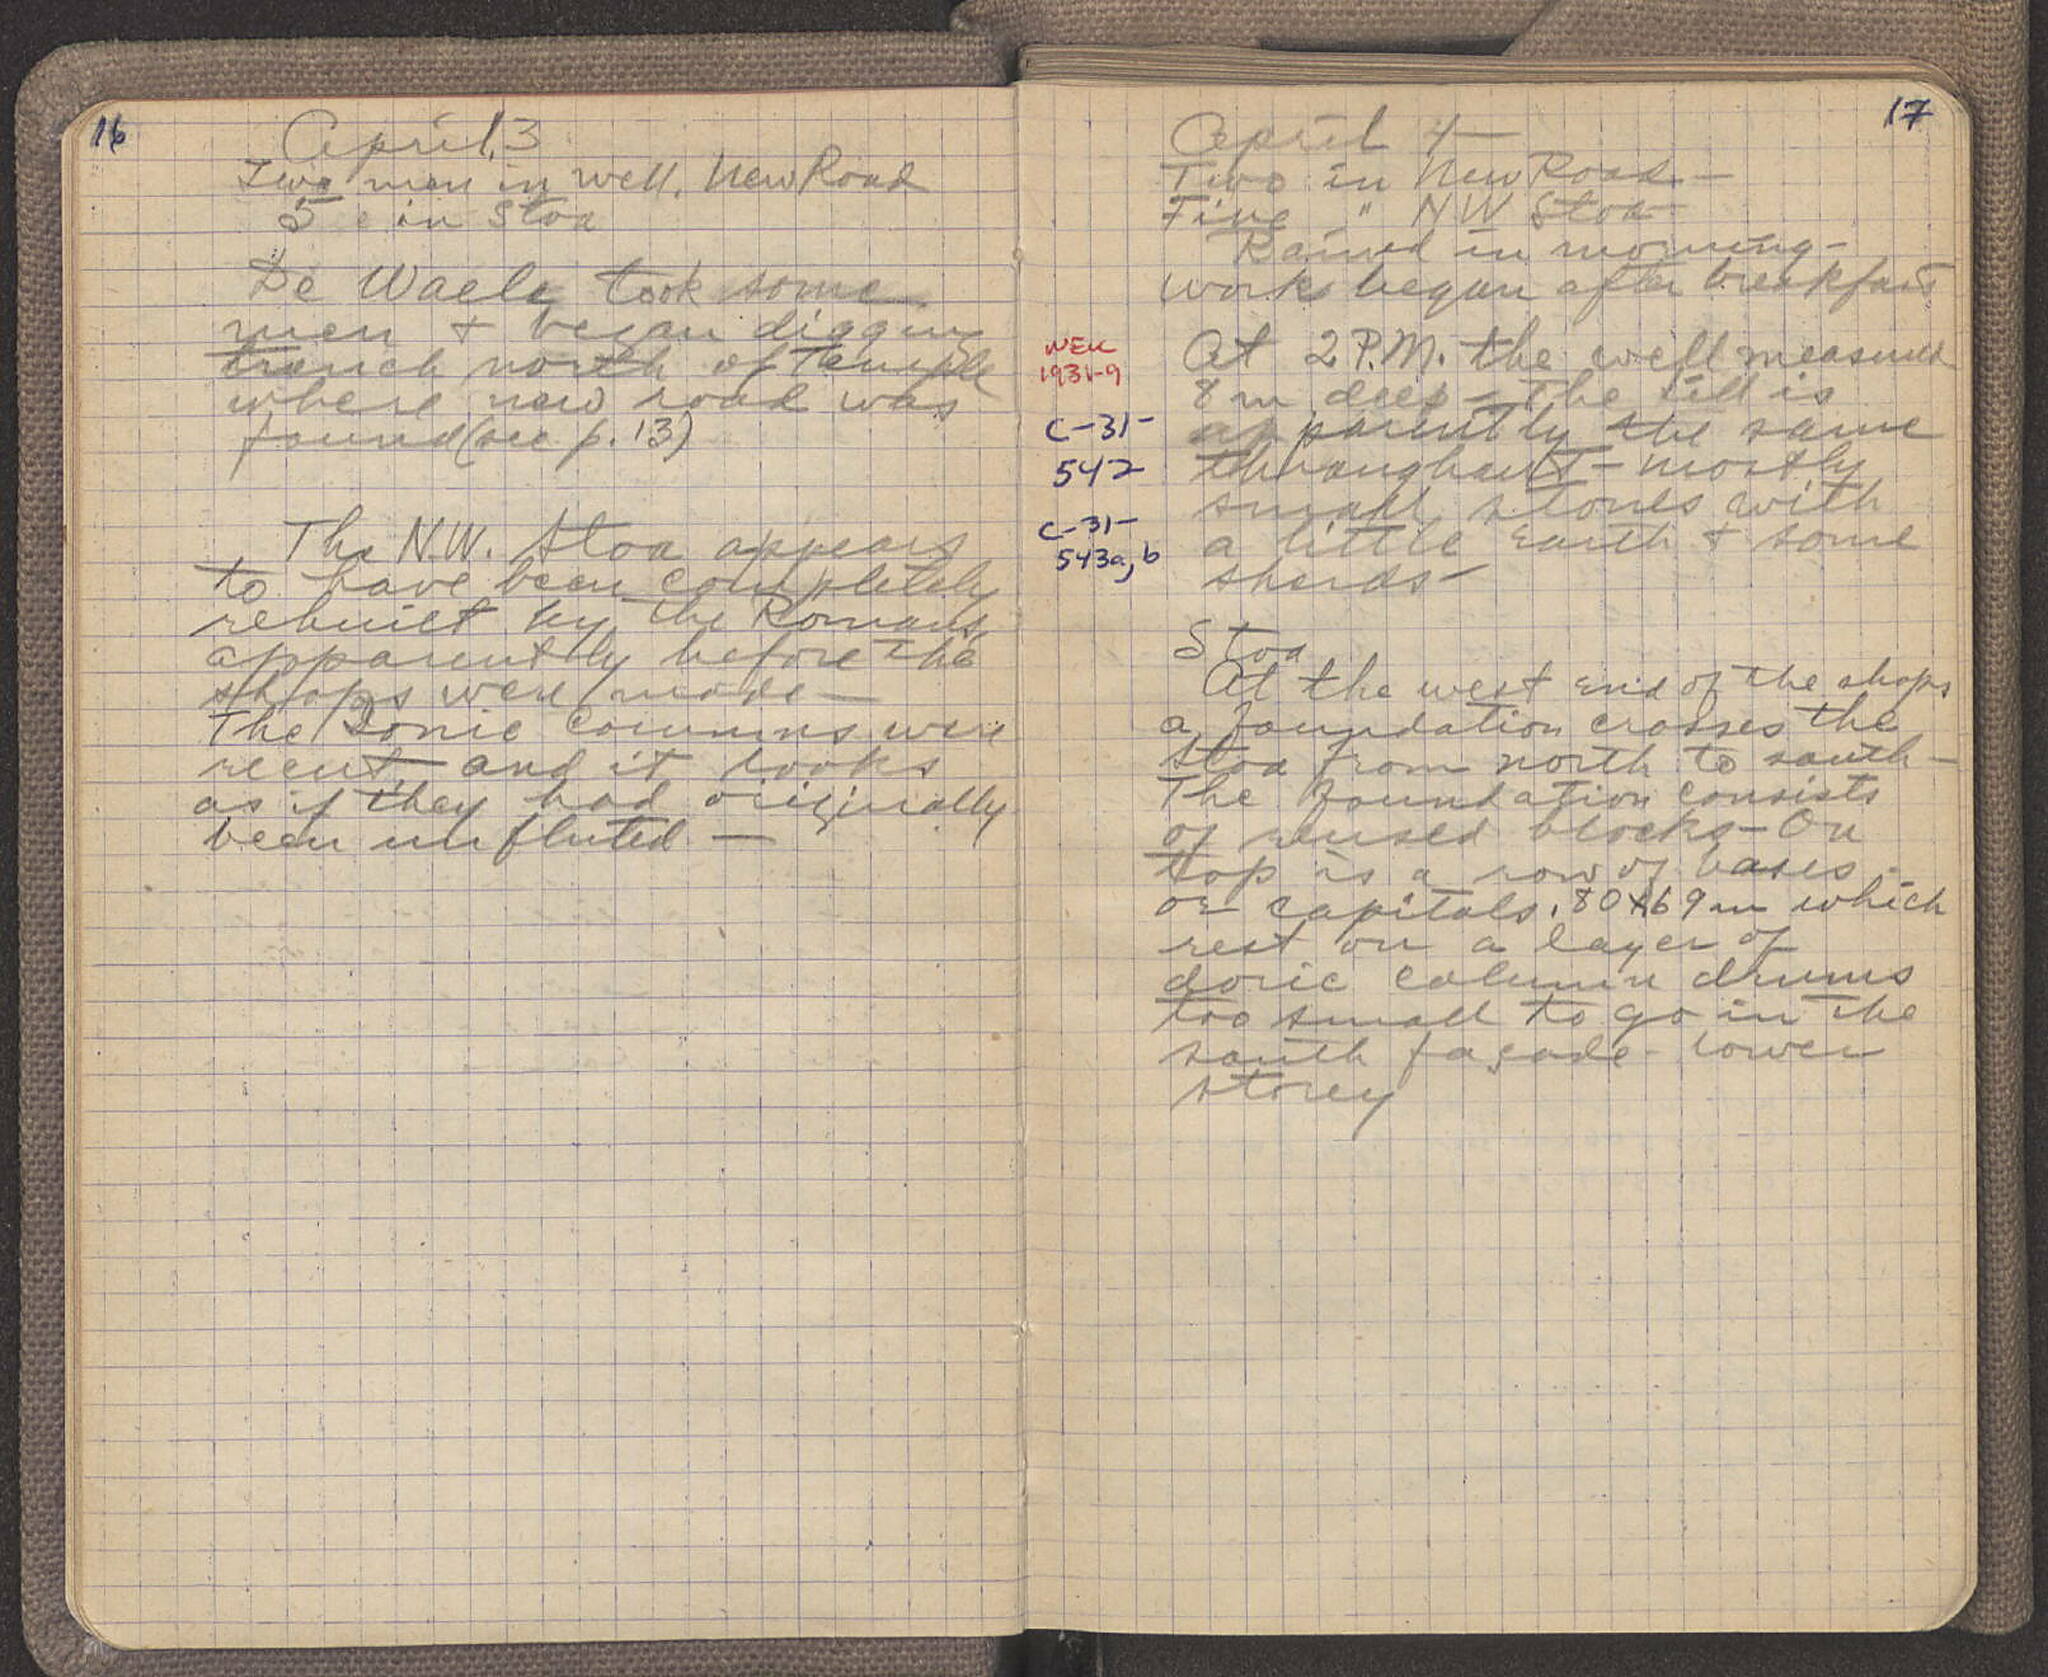 16
April 3
Two men in well. New Road
5 in Stoa
De Waele took some
men + began digging
trench north of Temple
where new road was
found (see p. 13)
The N.W. Stoa appears
to have been completely
rebuilt by the Romans,
apparently before the
shops were made —
The Ionic columns were
recut, and it looks
as if they had originally
been unfluted —
17
April 4 —
Two in New Road —
Five " NW Stoa
Rained in morning —
work began after breakfast
At 2 P.M. the well measured
8 m deep — The fill is
apparently the same
throughout — mostly
small stones with
a little earth + some
sherds —
WELL
1931-9
C-31-
542
C-31-
543a, b
Stoa
At the west end of the shops
a foundation crosses the
stoa from north to south —
The foundation consists
of reused blocks — On
top is a row of bases
or capitals .80 x .69 m which
rest on a layer of
doric column drums
too small to go in the
south façade - lower
storey